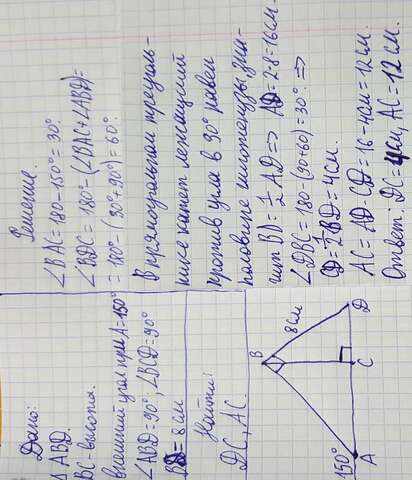 Дано:
Δ ABD.
BC-высота.
внешний угол при A=150°
∠ABD=90°; ∠BCD=90°
BD = 8см
Найти:
DC, AC.
B
8см
D
C
A
150°
Решение.
∠BAC=180-150°=30°.
∠BDC=180°-(∠BAC+∠ABD)=
=180°-(30°+90°)=60°.
В прямоугольном треуголь-
нике катет лежащий
против угла в 30° равен
половине гипотенузы, зна-
чит BD=½AD=> AD=2·8=16см.
∠DBC=180-(90+60)=30°. =>
CD=½BD=4см.
AC=AD-CD=16-4см=12см.
Ответ: DC=4см, AC=12см.